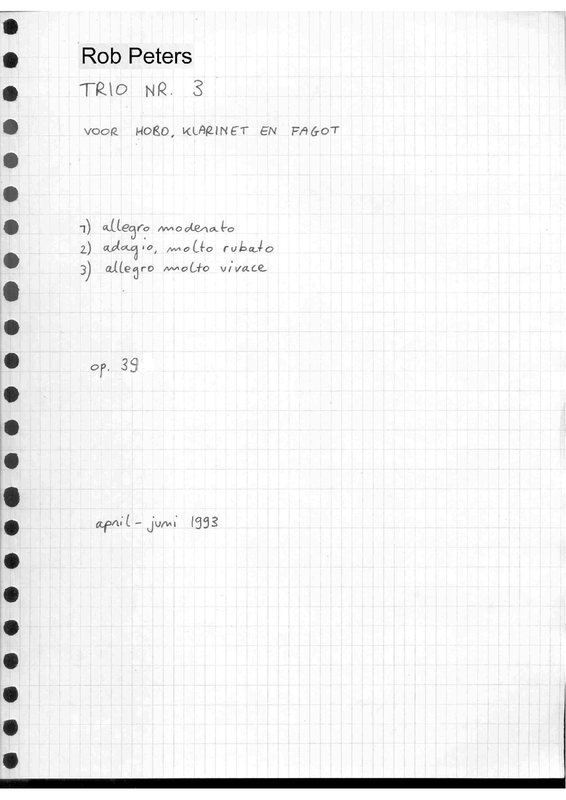 Rob Peters
TRIO NR. 3
VOOR HOBO, KLARINET EN FAGOT
1) allegro moderato
2) adagio, molto rubato
3) allegro molto vivace
op. 39
april - juni 1993